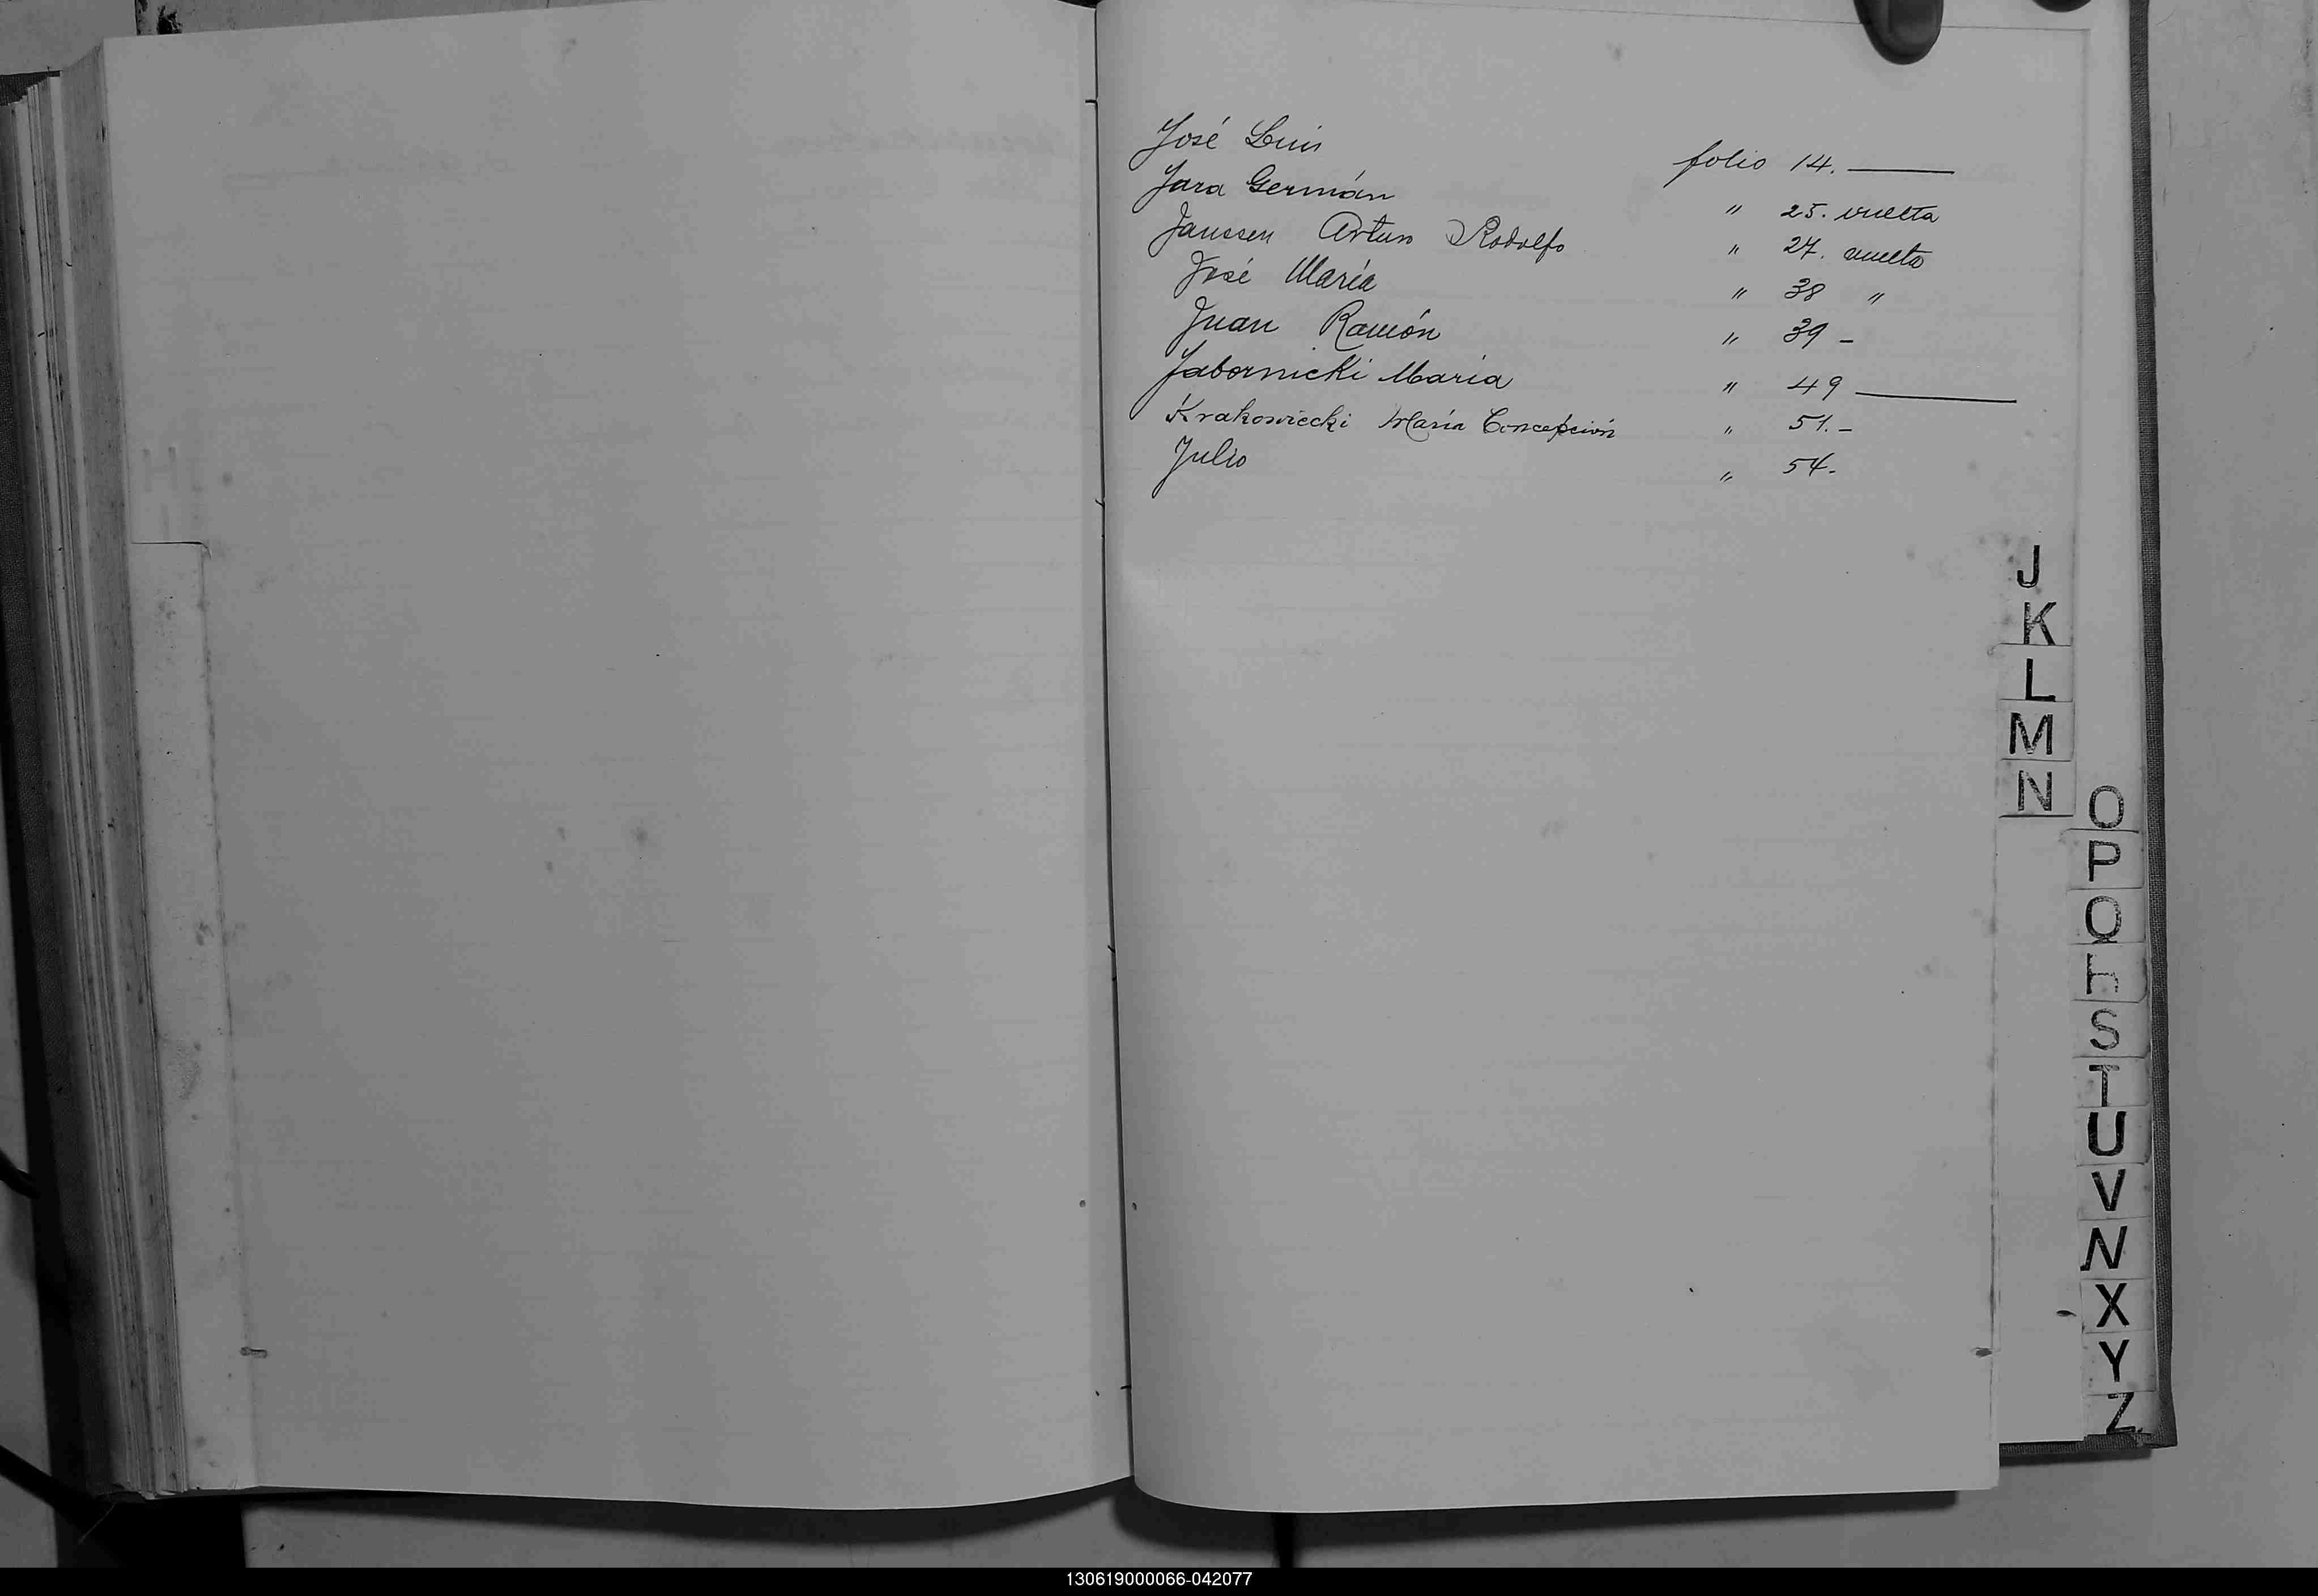 José Luis folio 14.
Jara Germán " 25. vuelta
Janssen Arturo Rodolfo " 27. vuelto
José María " 38 "
Juan Ramón " 39 -
Jabornicki María " 49
Krakowiecki María Concepción " 51. -
Julio " 54.
J
K
L
M
N
O
P
Q
S
T
U
V
X
Y
Z
130619000066-042077